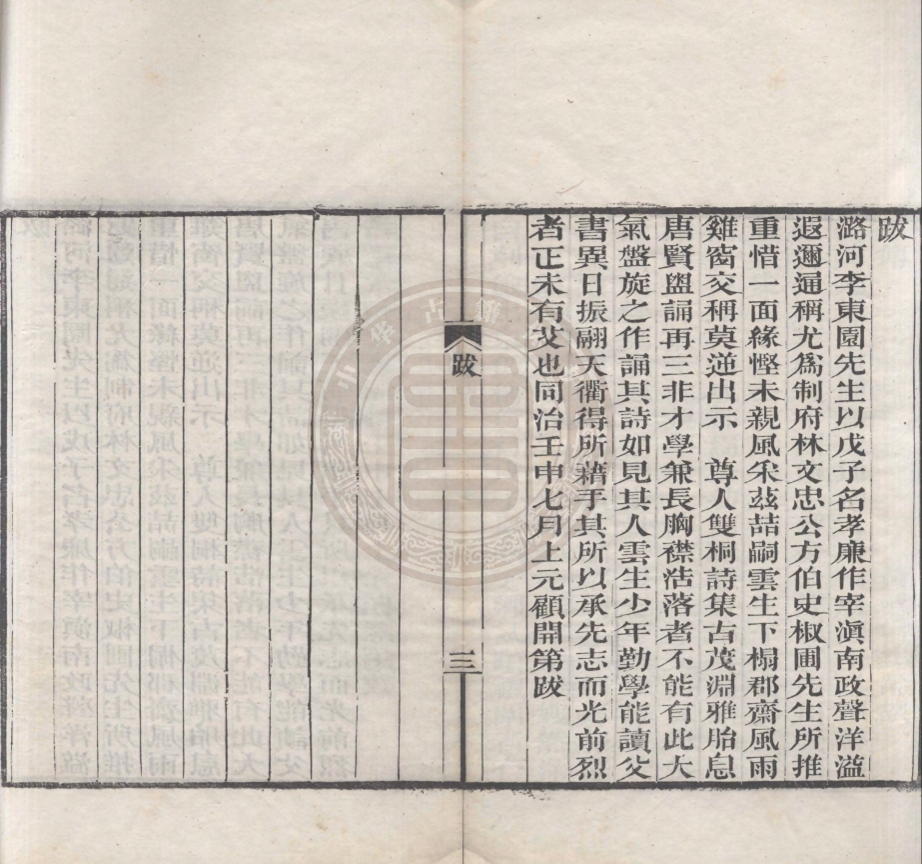 跋
潞河李東園先生以戊子名孝廉作宰滇南政聲洋溢
遐邇逼稱尤爲制府林文忠公方伯史椒圃先生所推
重惜一面緣慳未親風采茲喆嗣雲生下榻郡齋風雨
雞窗交稱莫逆出示　尊人雙桐詩集古茂淵雅胎息
唐賢盥誦再三非才學兼長胸襟浩落者不能有此大
氣盤旋之作誦其詩如見其人雲生少年勤學能讀父
書異日振翮天衢得所藉手其所以承先志而光前烈
者正未有艾也同治壬申七月上元顧開第跋
跋
三